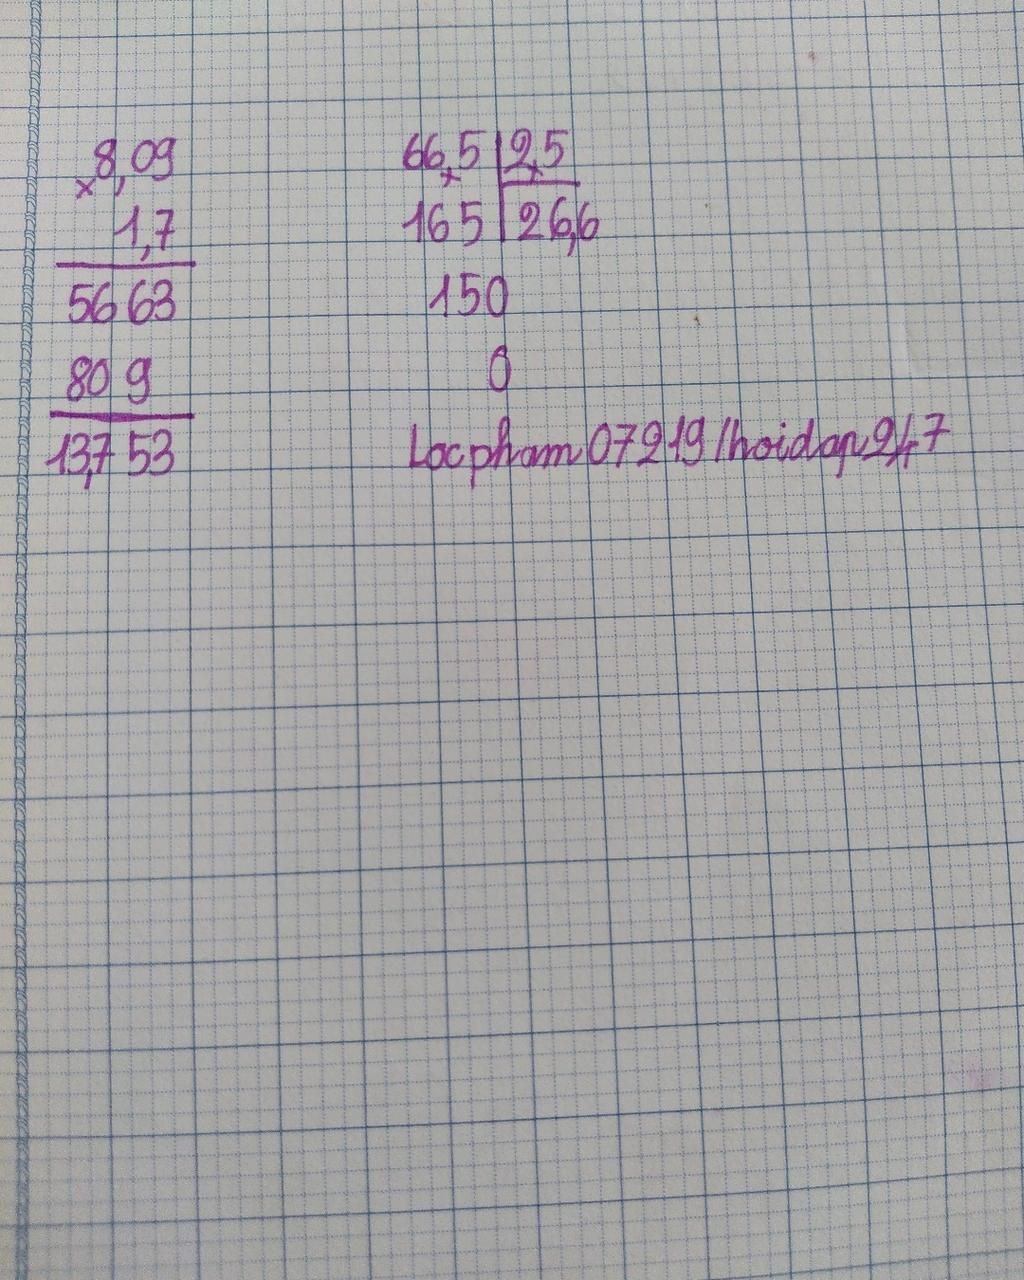 8,09
×
1,7
5663
809
13,753
66,5 2,5
165 26,6
150
0
Locpham07219/hoidap247